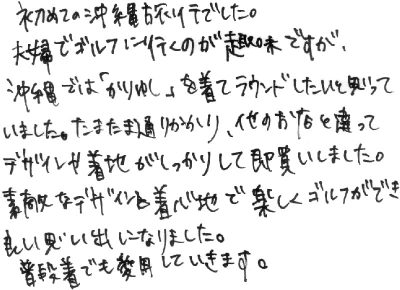 初めての沖縄旅行でした。
夫婦でゴルフに行くのが趣味ですが、
沖縄では「かりゆし」を着てラウンドしたいと思って
いました。たまたま通りかかり、他のお店と違って
デザインや着地がしっかりして即買いしました。
素敵なデザインと着心地で楽しくゴルフができ
良い思い出になりました。
普段着でも愛用していきます。